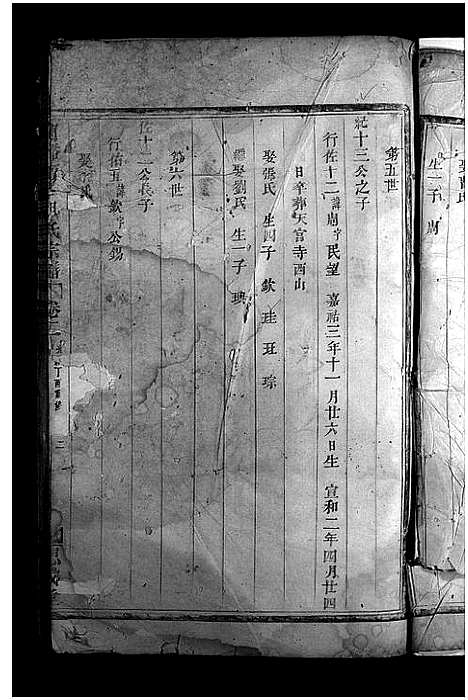 娶曹氏
生二子
第五世
紀十三公之子
行佐十二 諱 字民望 嘉祐三年十一月廿六日生 宣和二年四月廿四
日卒葬天官寺西山
娶張氏 生四子 欽 珪 玨 琮
繼娶劉氏 生一子 琠
第六世
佐十二公長子
行佑五 諱欽字公錫
娶 氏
氏宗譜 卷
三